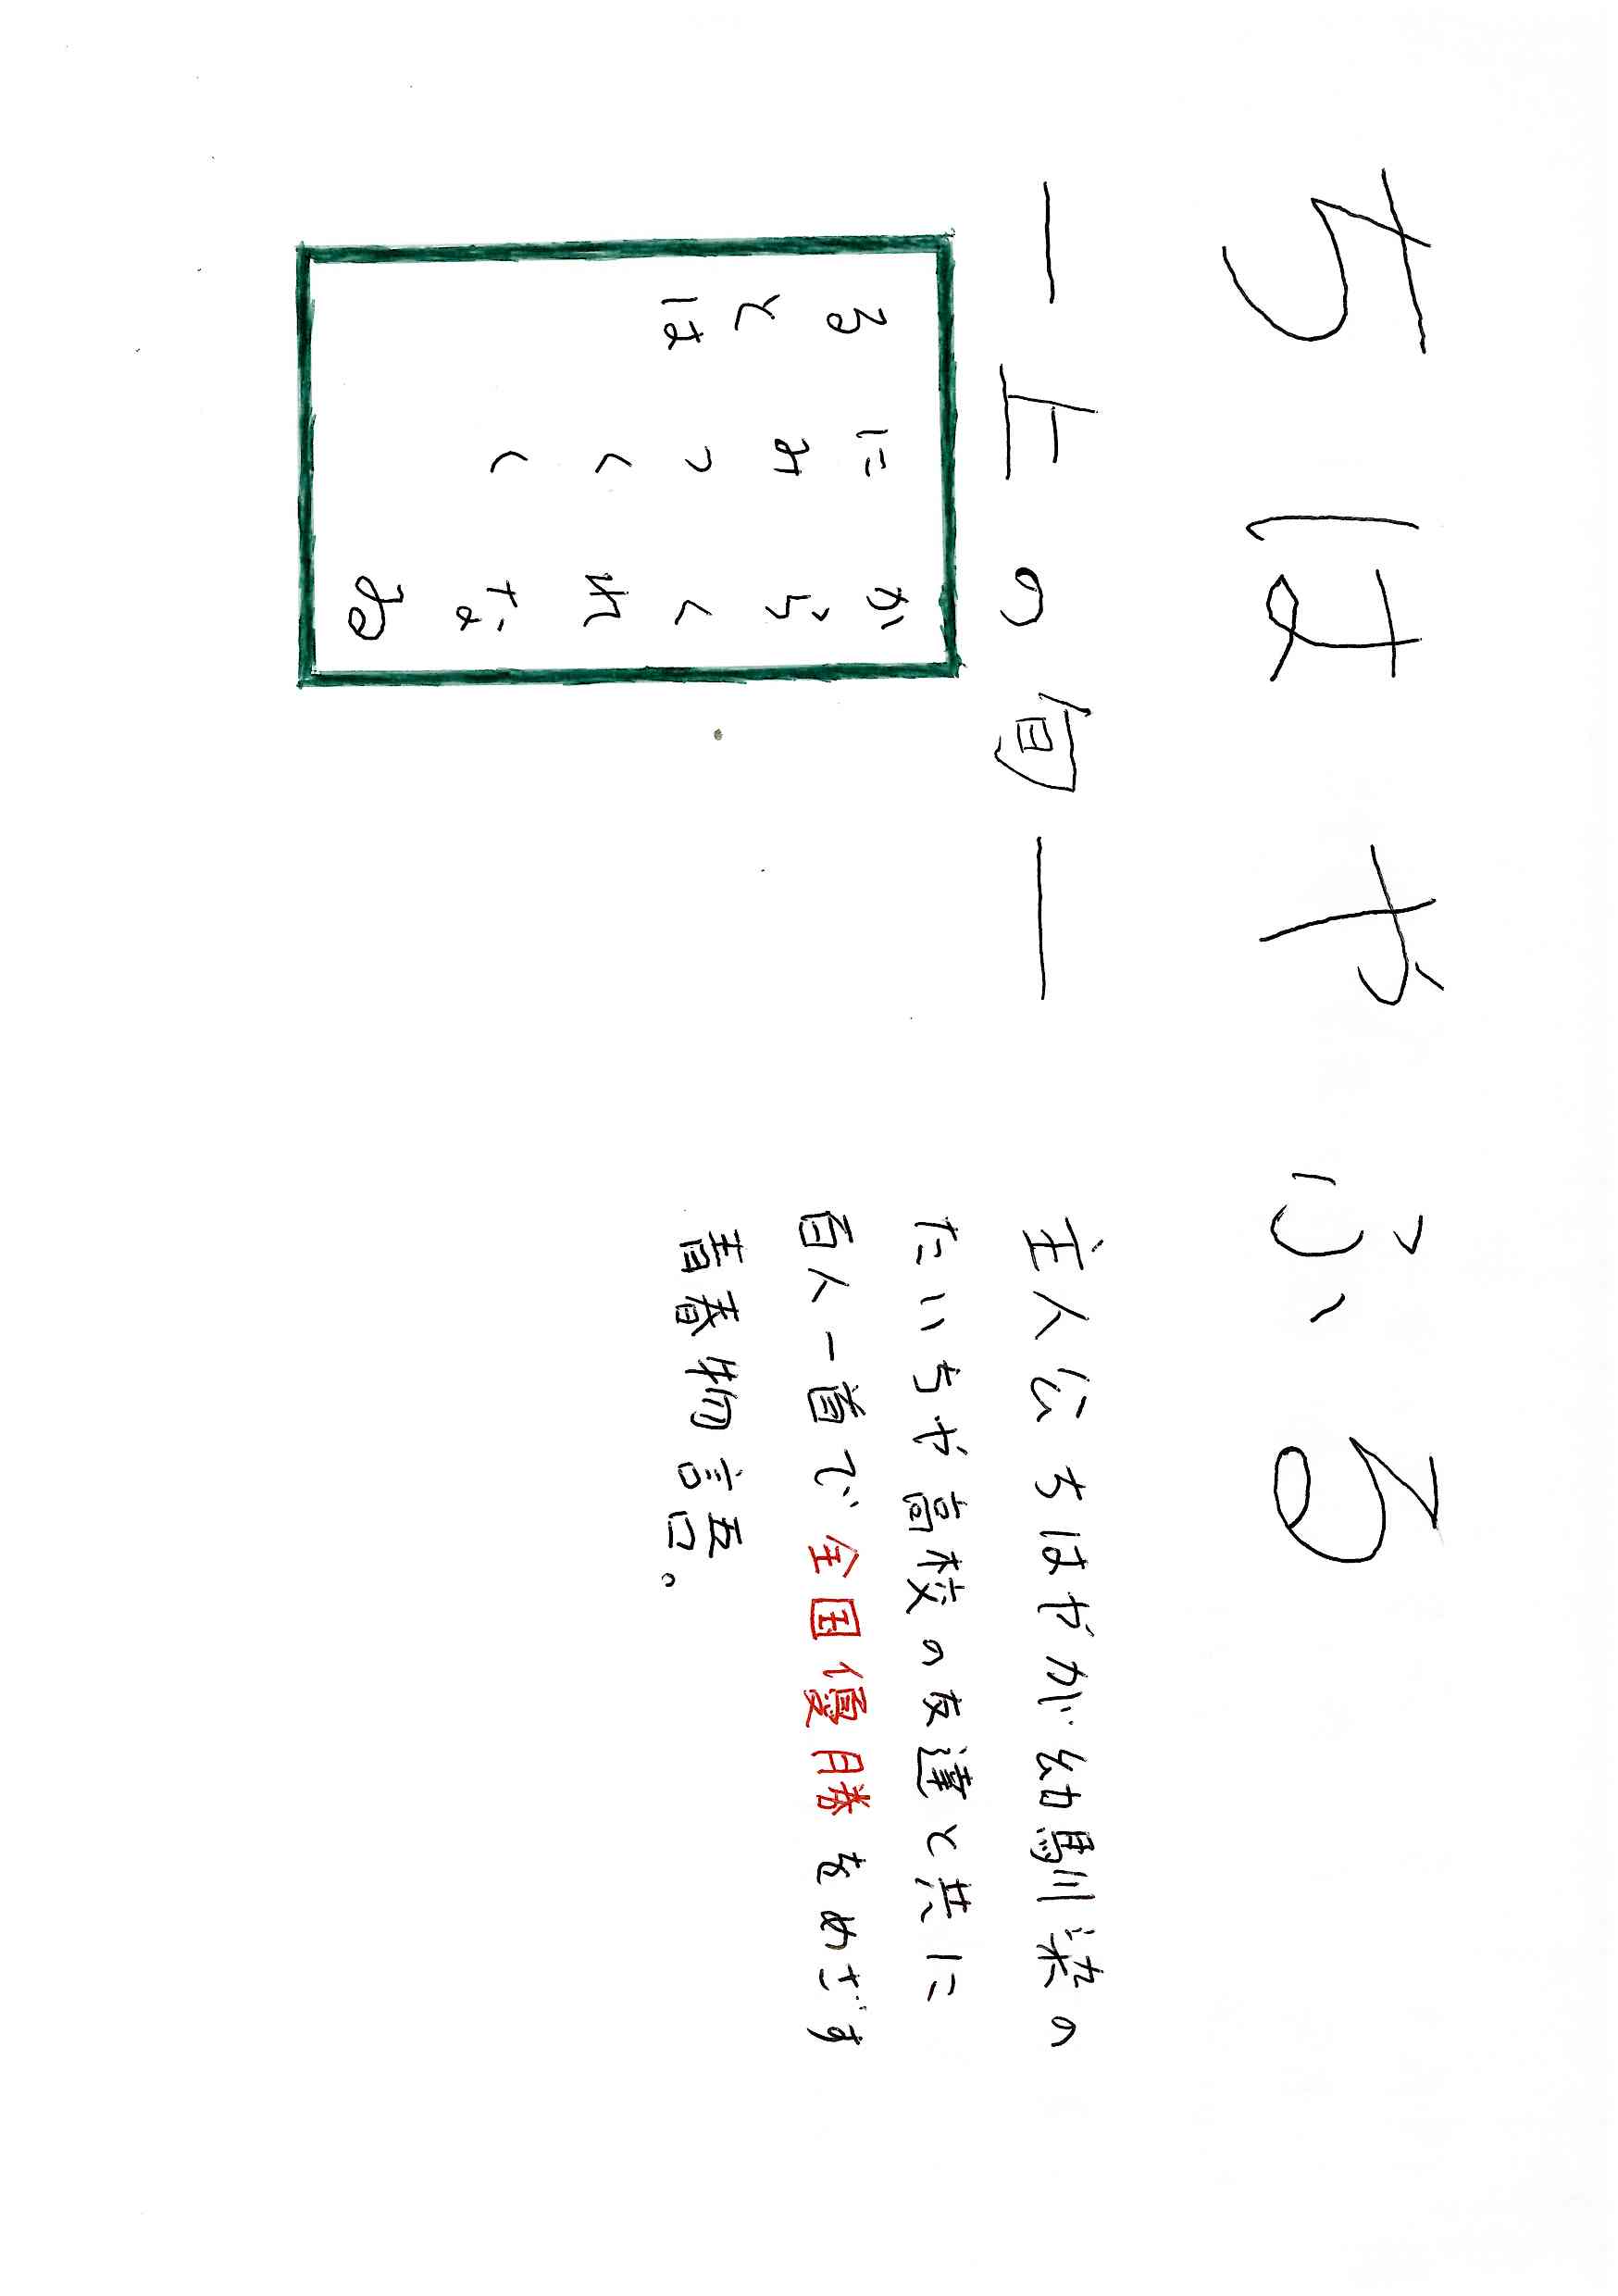 ちはやふる
―上の旬―
からくれなゐ
にみつくく
るとは
主人公ちはやが幼馴染の
たいちや高校の友達と共に
百人一首で全国優勝をめざす
青春物語。